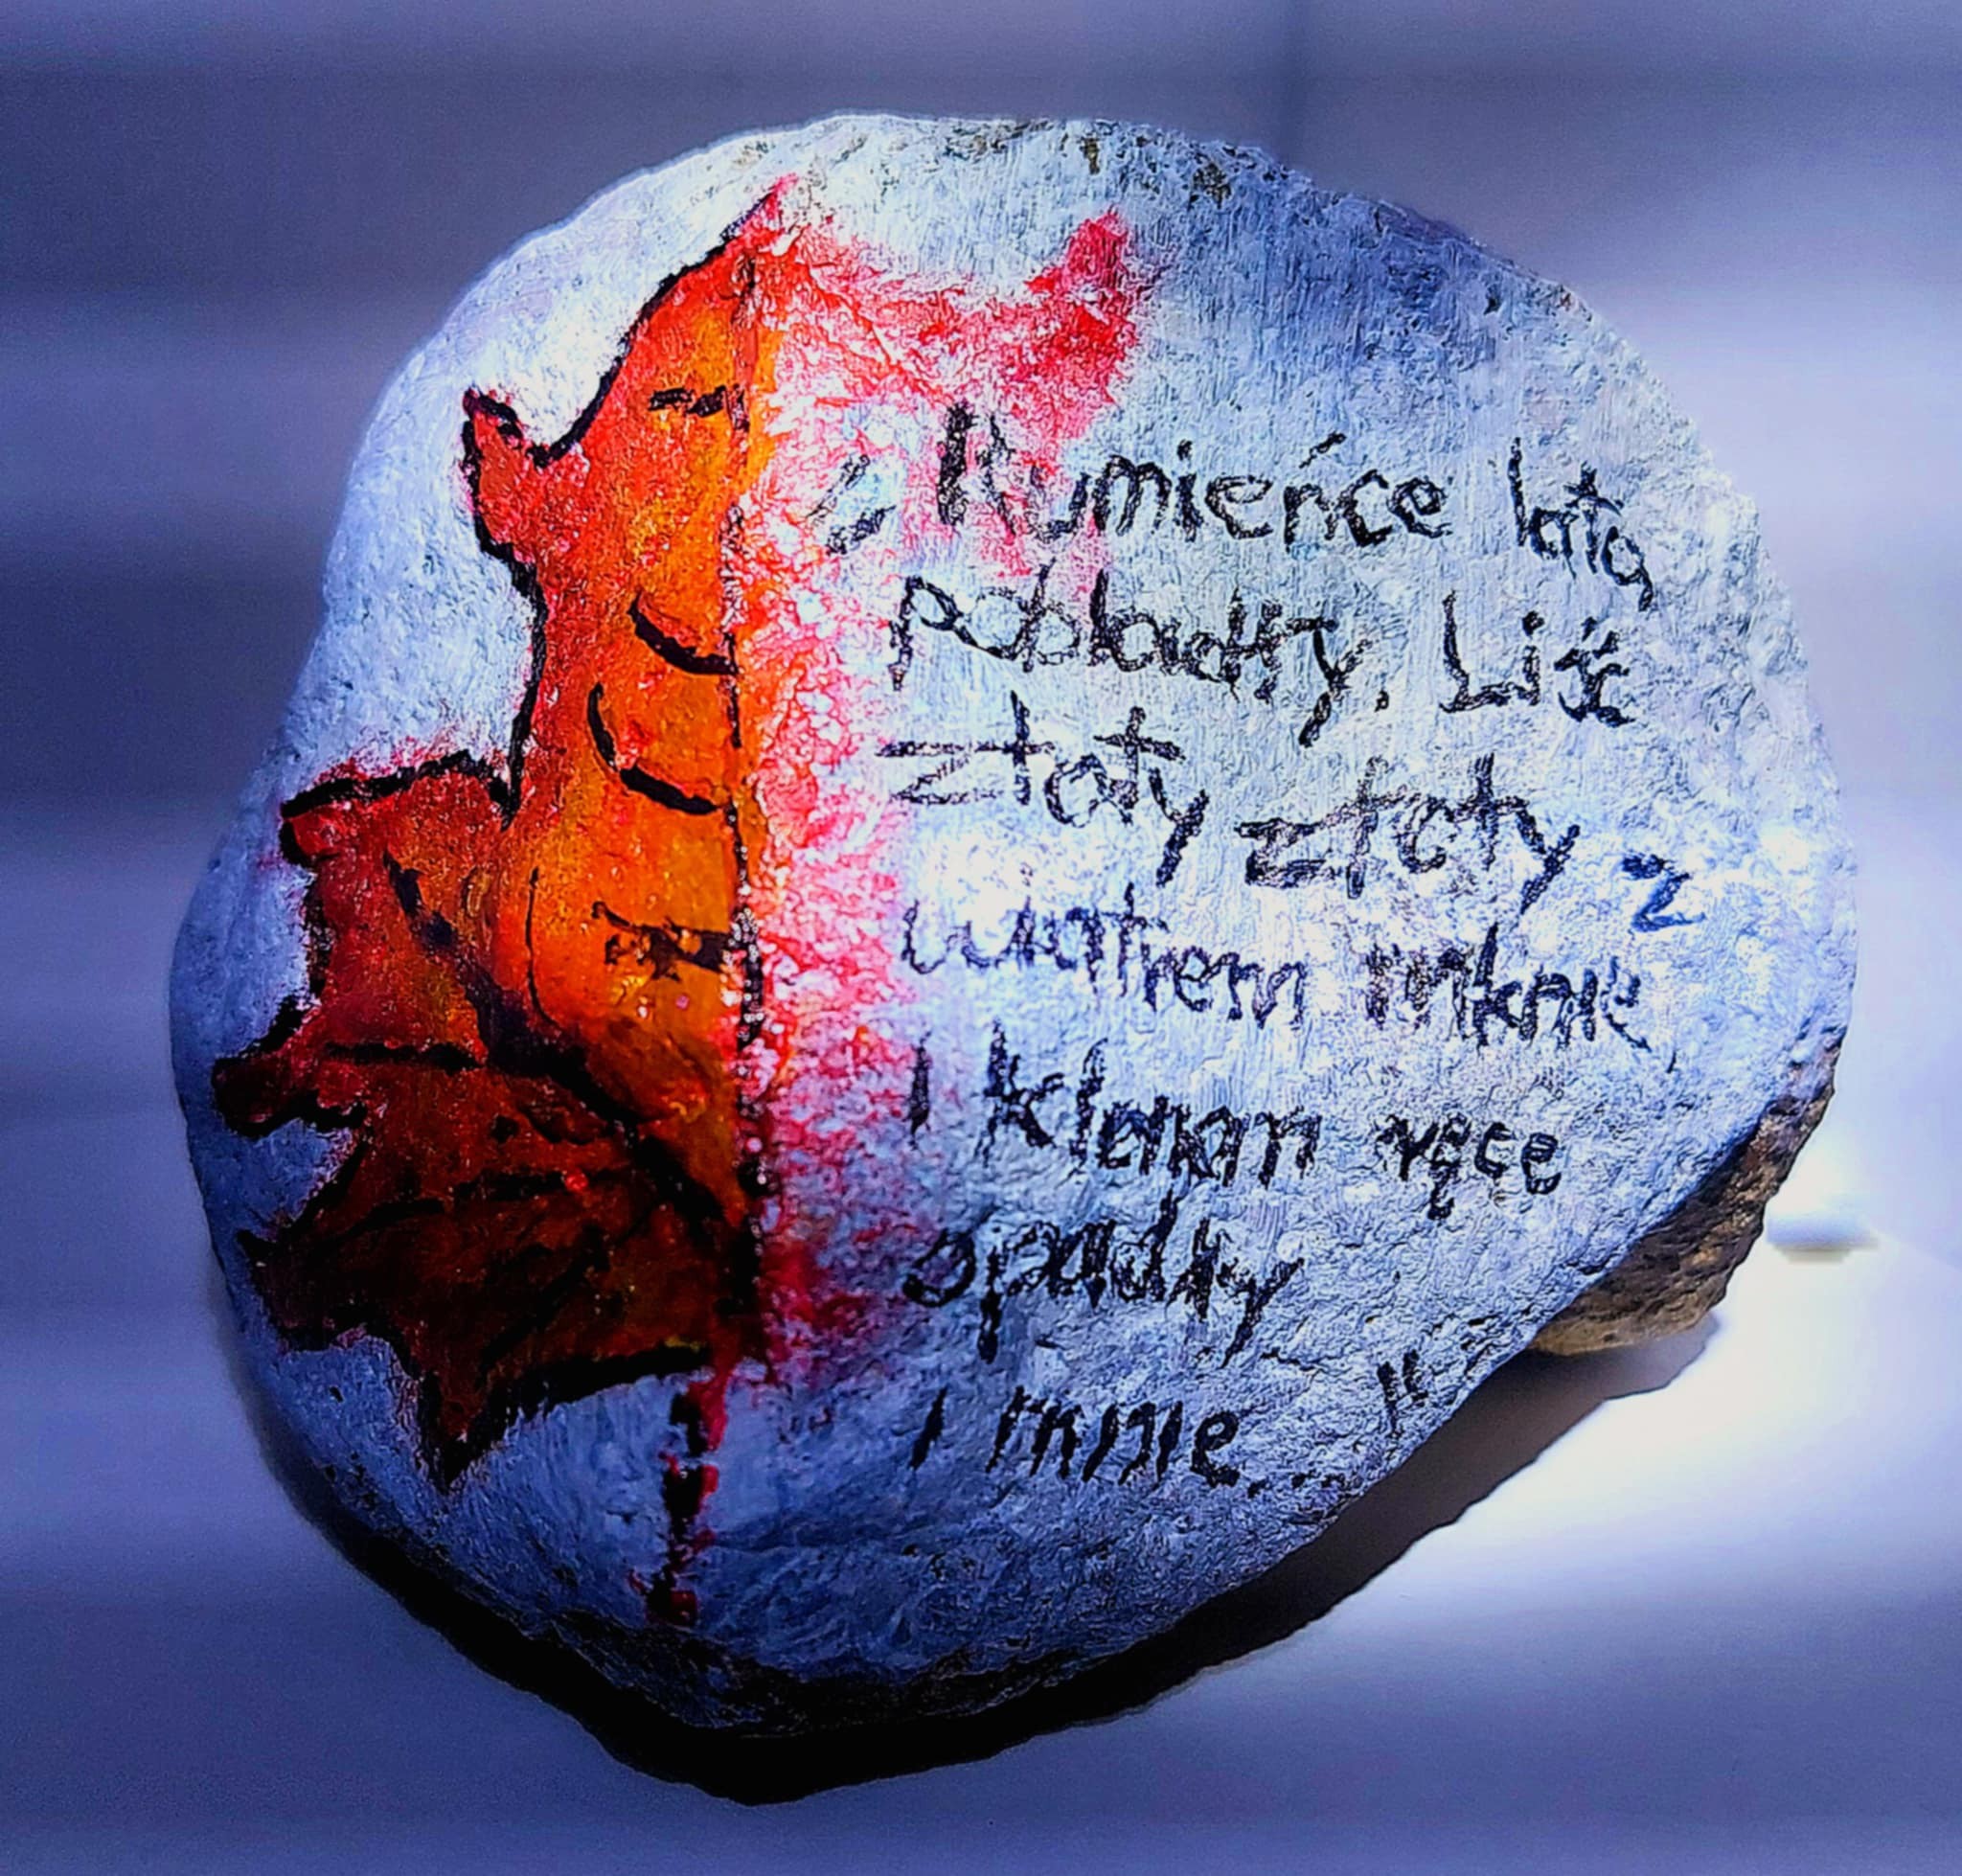 „Rumieńce lata
pobladły. Liść
złoty złoty z
wiatrem mknie
i klonom ręce
opadły
i mnie..."